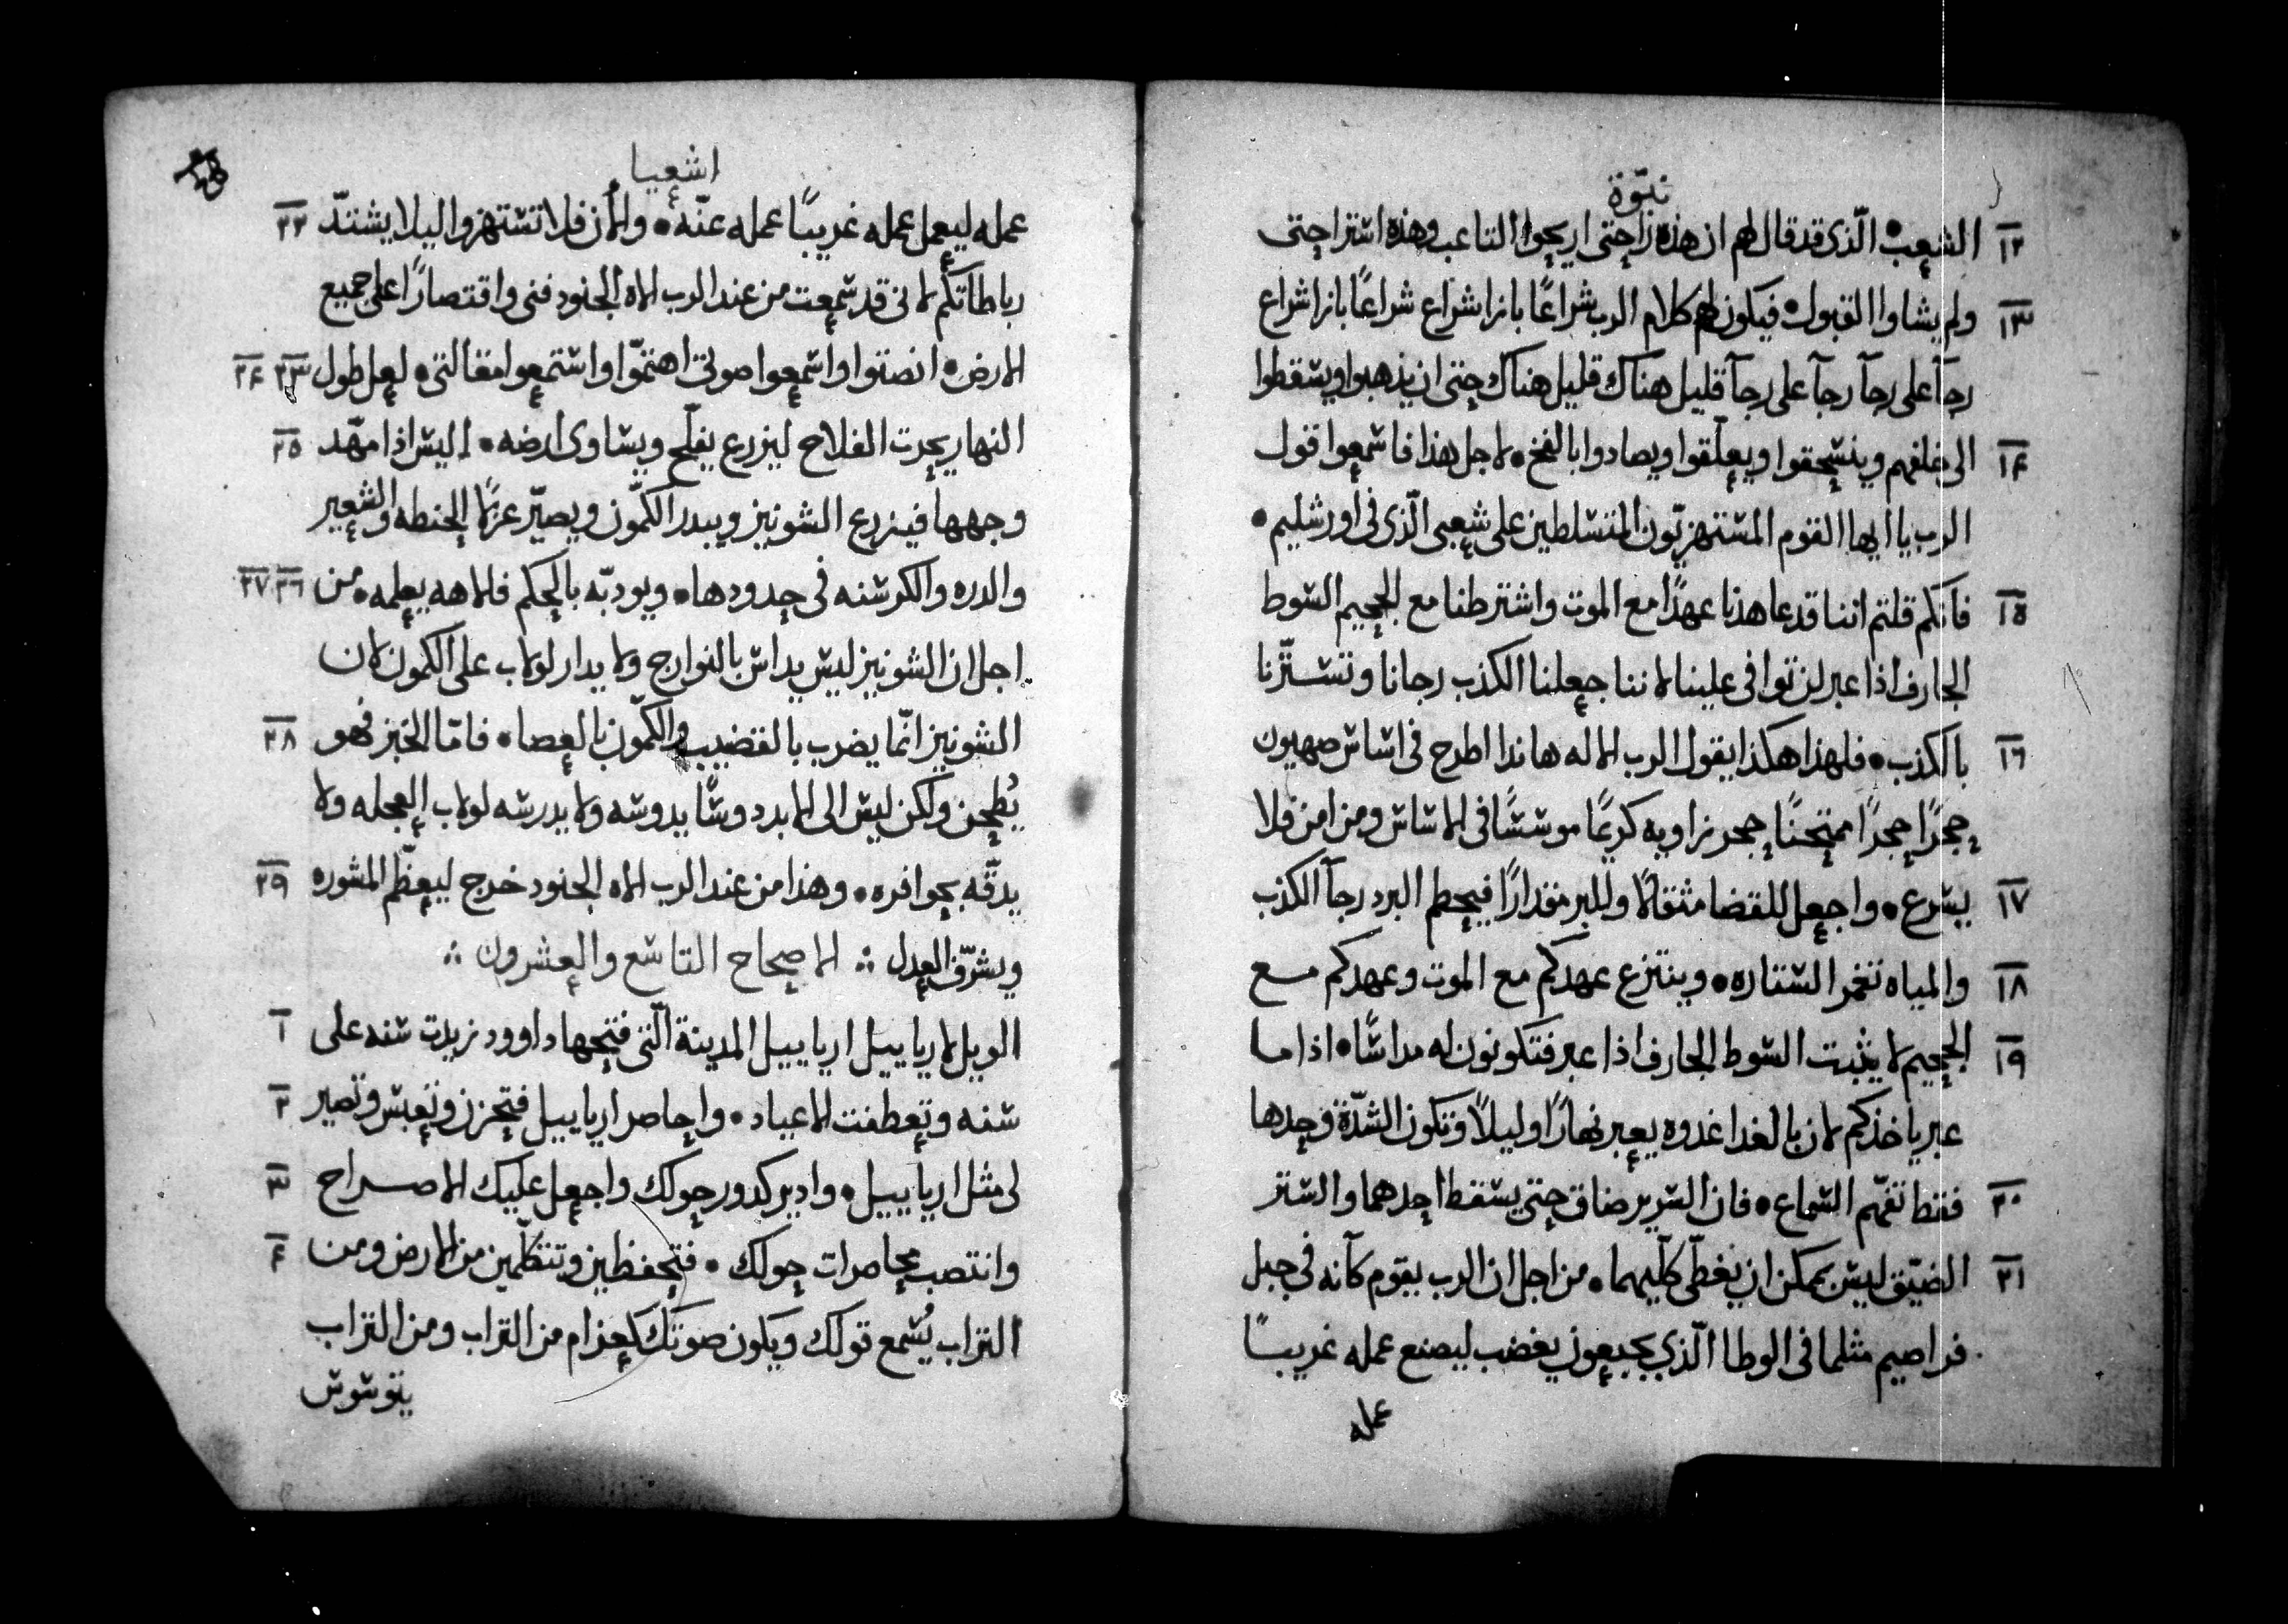 نبوّة
١٢ الشعب • الّذى قد قال لهم ان هذه راحتى اريحوا التاعب وهذه استراحتى
١٣ ولم يشاوا القبول • فيكون لهم كلام الرب شراعًا بازا شراع شراعًا بازا شراع
رجآ على رجآ رجآ على رجآ قليل هناك قليل هناك حتى ان يذهبوا ويسقطوا
١٤ الى خلفهم وينسحقوا ويعلّقوا ويصادوا بالفخ • لاجل هذا فاسمعوا قول
الرب يا ايها القوم المستهزيّون المتسلطين على شعبى الّذى فى اورشليم •
١٥ فانكم قلتم اننا قد عاهدنا عهدًا مع الموت واشترطنا مع الجحيم السوط
الجارف اذا عبر لن توافى علينا لاننا جعلنا الكذب رجانا وتستّرنا
١٦ بالكذب • فلهذا هكذا يقول الرب الاله هانذا اطرح فى اساس صهيون
حجرًا حجرًا ممتحنًا حجر زاويه كريمًا موسسًا فى الاساس ومن امن فلا
١٧ يسرع • واجعل للقضا مثقالًا وللبر مقدارًا فيحطم البرد رجآ الكذب
١٨ والمياه تغمر الستاره • وينتزع عهدكم مع الموت وعهدكم مع
١٩ الجحيم لا يثبت السوط الجارف اذا عبر فتكونون له مداسًا • اذا ما
عبر ياخذكم لان بالغدا غدوه يعبر نهارًا وليلًا وتكون الشدّة وحدها
٢٠ فقط تفهّم السماع • فان السرير ضاق حتى يسقط احدهما والستر
٢١ الضيّق ليس يمكن ان يغطّى كلّيهما • من اجل ان الرب يقوم كانه فى جبل
فراصيم مثلما فى الوطا الّذى بجبعون يغضب ليصنع عمله غريبًا
عمله
اشعيا
عمله ليعمل عمله غريبًا عمله عنّه • والان فلا تستهزوا ليلا يشتدّ ٢٢
رباطاتكم لانى قد سمعت من عند الرب الاه الجنود فنى واقتصارًا على جميع
الارض • انصتوا واسمعوا صوتى اهتمّوا واستمعوا مقالتى • لعل طول ٢٣ ٢٤
النهار يحرت الفلاح ليزرع يفلّح ويساوى ارضه • اليس اذا مهّد ٢٥
وجهها فيزرع الشونيز ويبدر الكمّون ويصيّر عرمًا الحنطه والشعير
والدره والكرسنه فى حدودها • ويودبّه بالحكم فلاهه يعلمه • من ٢٦ ٢٧
اجل ان الشونيز ليس يداس بالنوارج ولا يدار لولاب على الكمون لان
الشونيز انّما يضرب بالقضيب والكمّون بالعصا • فامّا الخبز فهو ٢٨
يُطحن ولكن ليس الى الابد دوسًا يدوسه ولا يدرسه لولاب العجله ولا
يدقّه بحوافره • وهذا من عند الرب الاه الجنود خرج ليعظّم المشوره ٢٩
ويشرّف العدل ∴ الاصحاح التاسع والعشرون ∴
الويل لارياييل ارياييل المدينة الّتى فتحها داوود زيدت سنه على ١
سنه وتعطفت الاعياد • واحاصر ارياييل فتحزن وتعبس وتصير ٢
لى مثل ارياييل • وادير كدور حولك واجعل عليك الاصراح ٣
وانتصب محاصرات حولك • فتحفظين وتتكلّمين من الارض ومن ٤
التراب يُسمع قولك ويكون صوتك كعزام من التراب ومن التراب
يوسوس